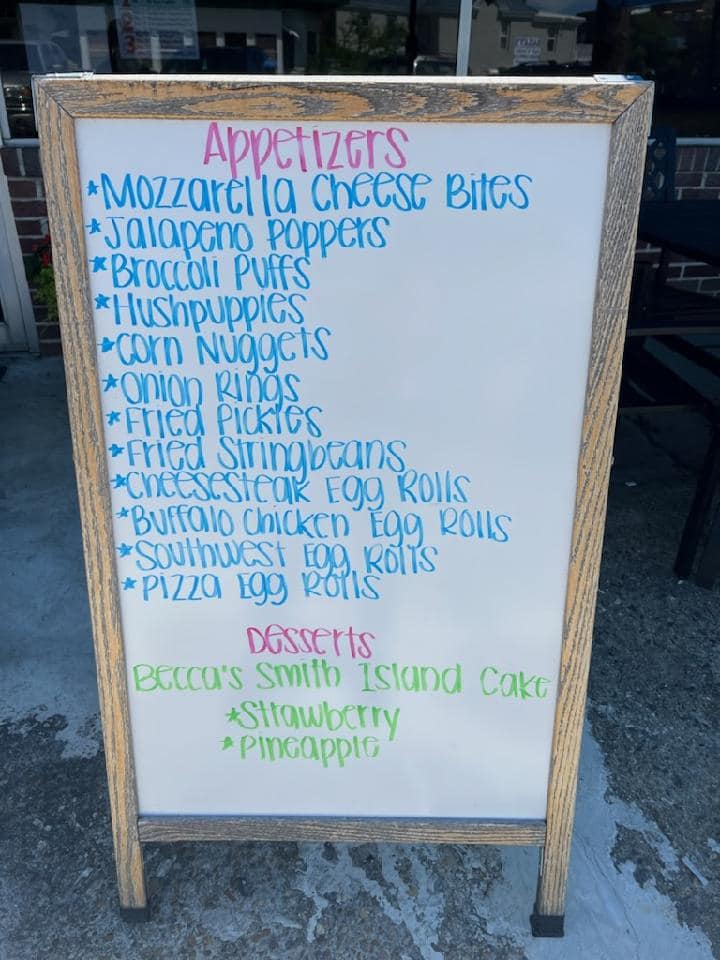 Appetizers
*Mozzarella Cheese Bites
*Jalapeno Poppers
*Broccoli Puffs
*Hushpuppies
*Corn Nuggets
*Onion Rings
*Fried Pickles
*Fried Stringbeans
*Cheesesteak Egg Rolls
*Buffalo Chicken Egg Rolls
*Southwest Egg Rolls
*Pizza Egg Rolls
Desserts
Becca's Smith Island Cake
*Strawberry
*Pineapple